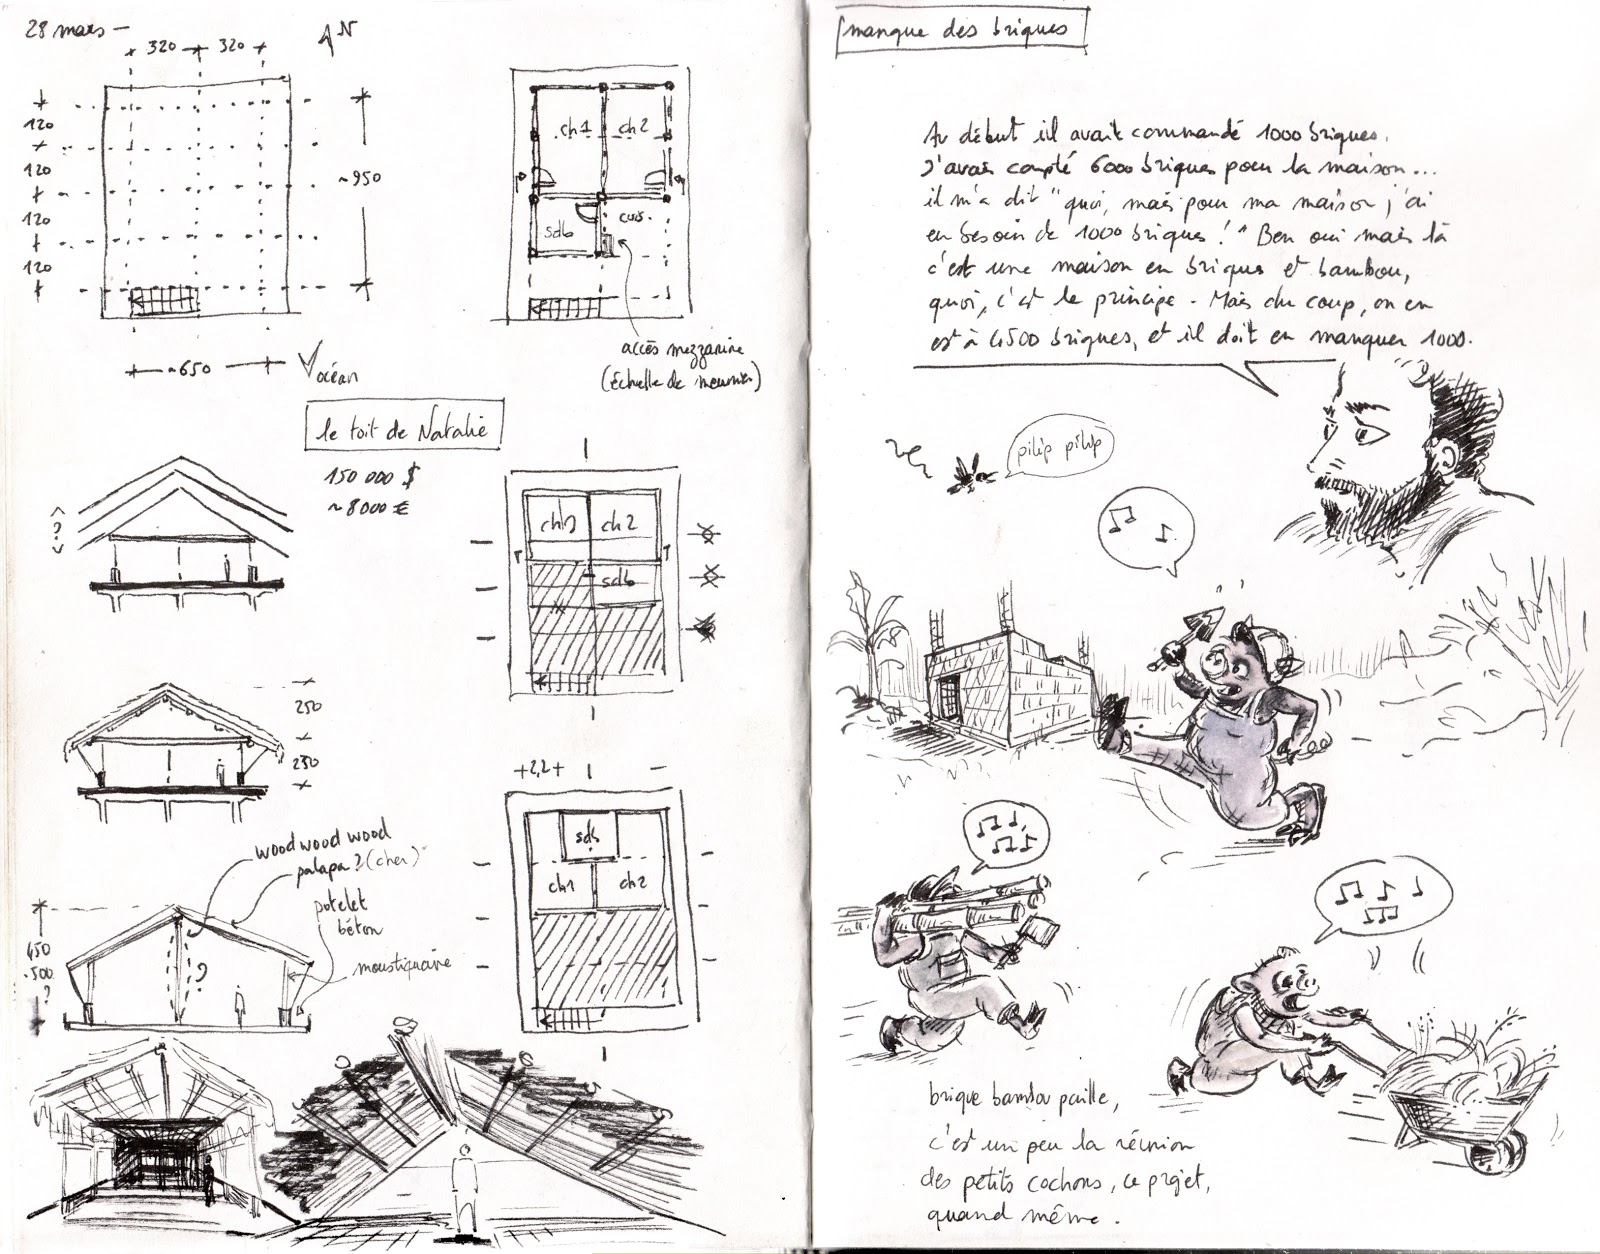 28 mars -
320
320
N
120
120
120
120
~950
~650
océan
ch1
ch2
sdb
cuis.
accès mezzanine
(échelle de meunier)
le toit de Natalie
150 000 $
~8000 €
?
ch1
ch2
sdb
250
250
+2,2+
sdb
ch1
ch2
wood wood wood
palapa ? (cher)
potelet
béton
moustiquaire
450
-500
?
?
manque des briques
Au début il avait commandé 1000 briques.
J'avais compté 6000 briques pour la maison...
il m'a dit "quoi, mais pour ma maison j'ai
eu besoin de 1000 briques !" Ben oui mais là
c'est une maison en briques et bambou,
quoi, c'est le principe. Mais du coup, on en
est à 4500 briques, et il doit en manquer 1000.
pilip pilip
brique bambou paille,
c'est un peu la réunion
des petits cochons, ce projet,
quand même.